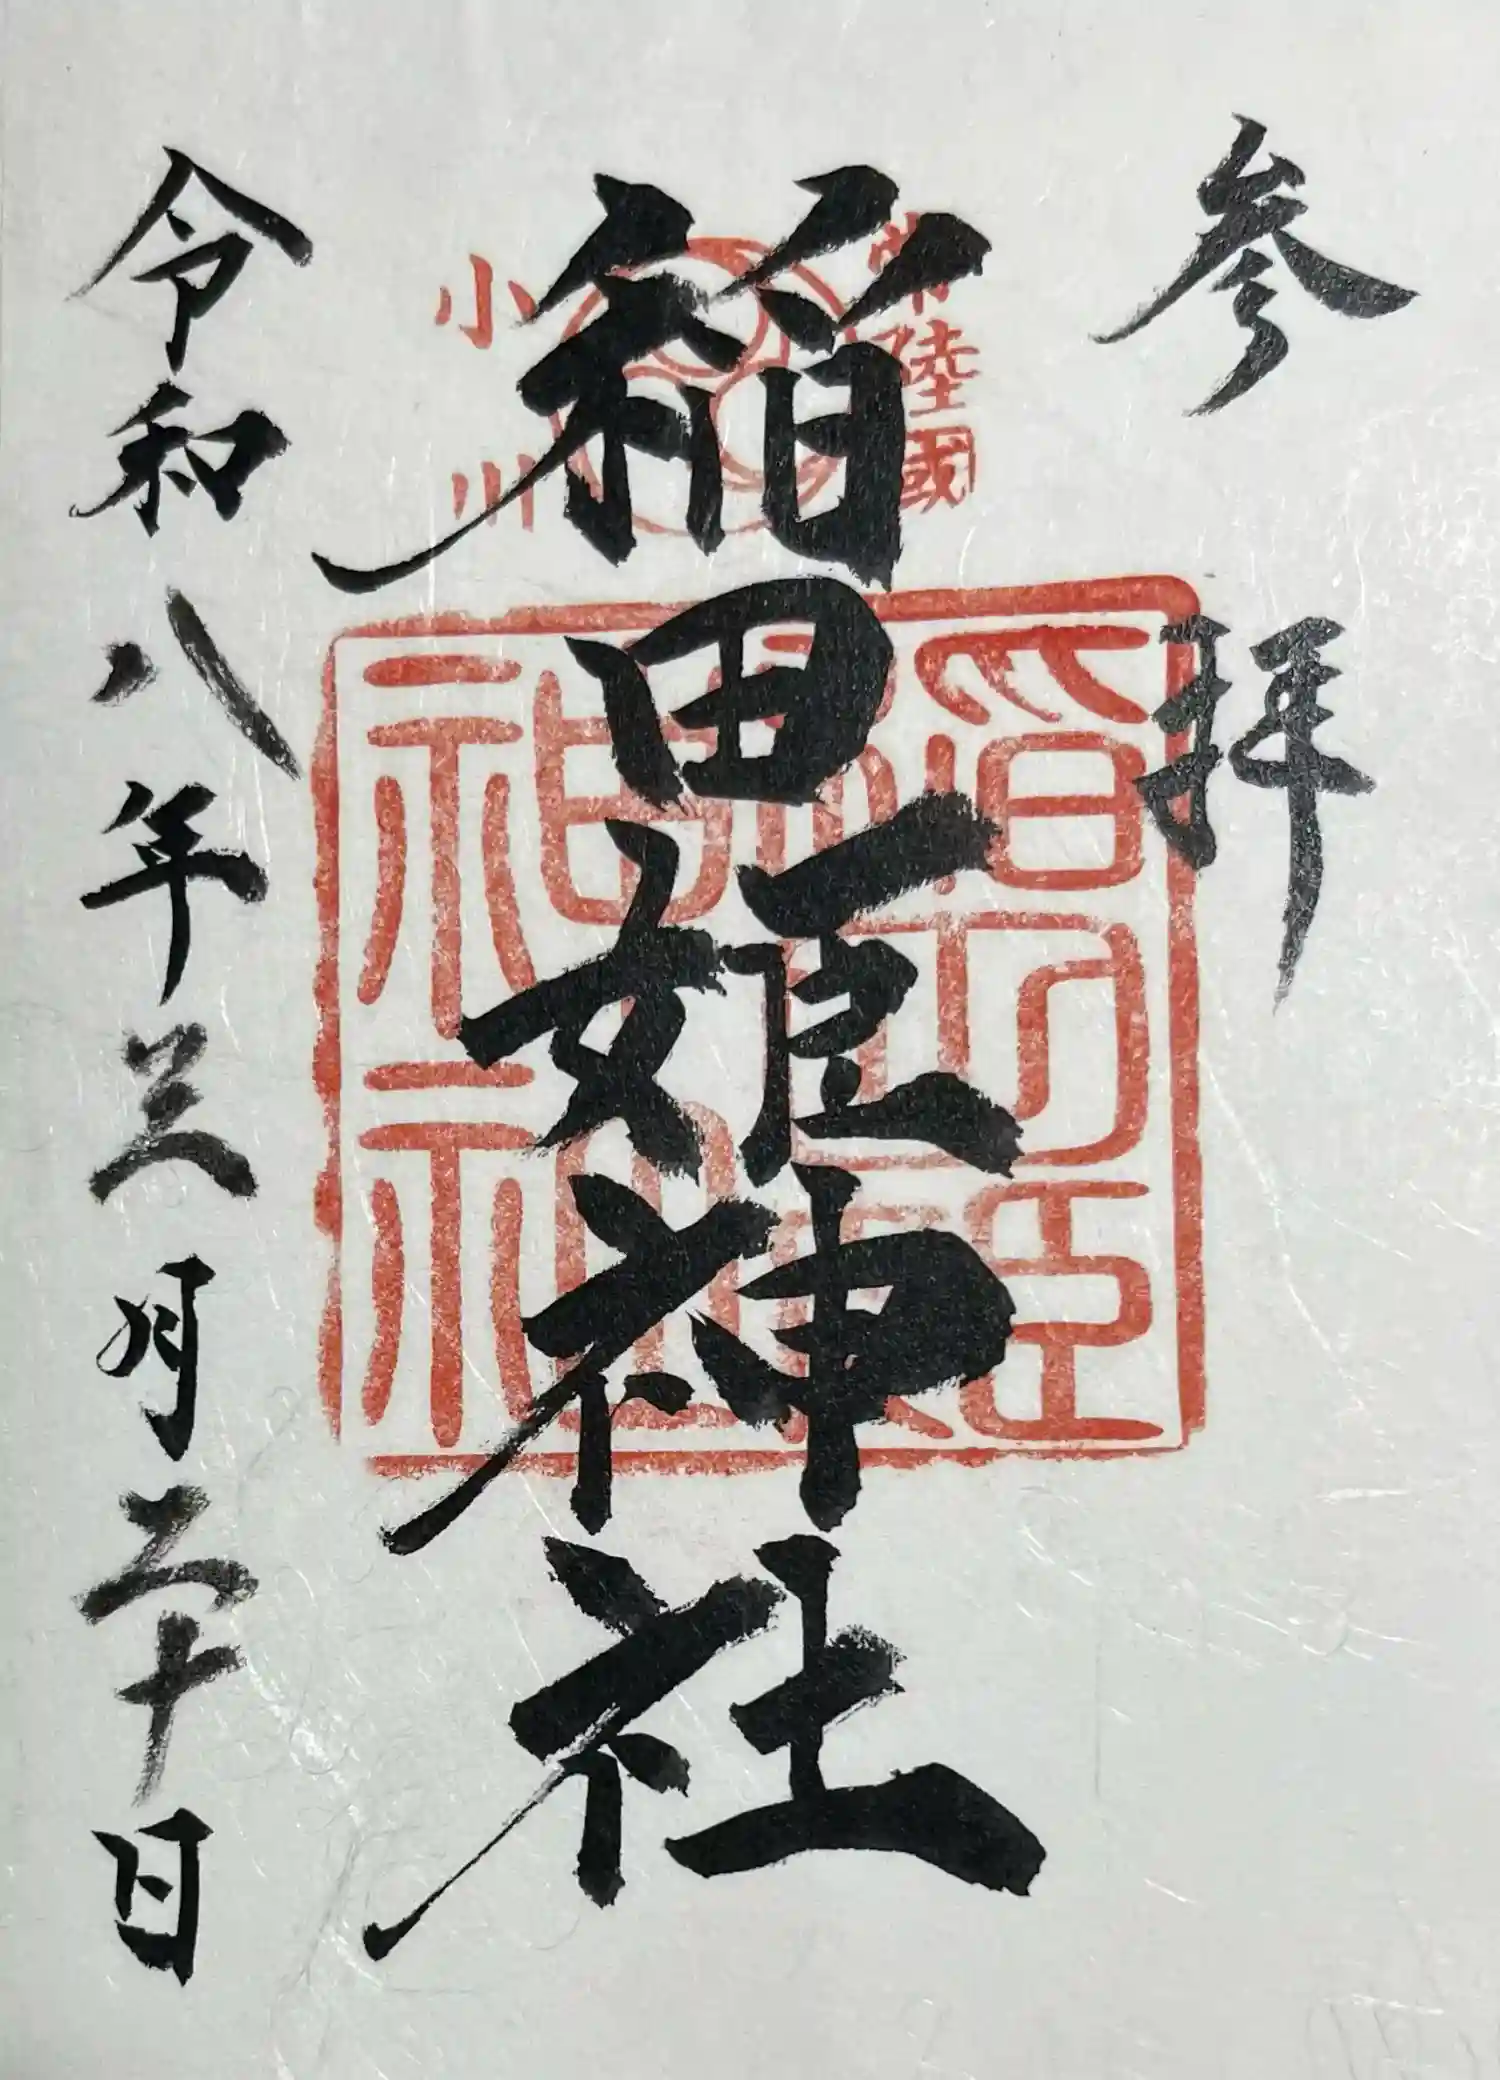 参拝
常陸國
稲田姫神社
小川
神社
令和八年三月二十日